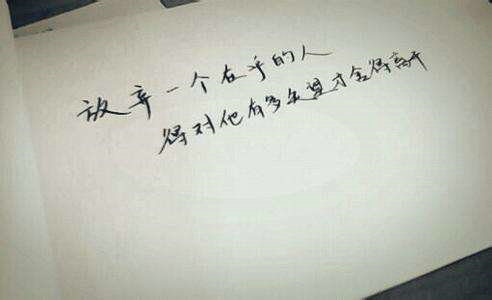 放弃一个在乎的人
得对他有多失望才舍得离开